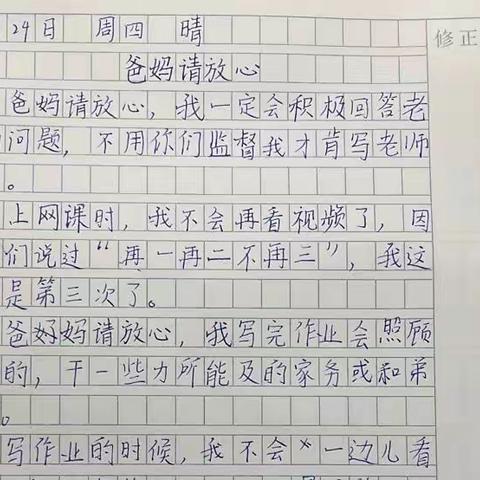 24日 周四 晴
修正
爸妈请放心
爸妈请放心，我一定会积极回答老
问题，不用你们监督我才肯写老师
。
上网课时，我不会再看视频了，因
们说过“再一再二不再三”，我这
是第三次了。
爸妈请放心，我写完作业会照顾
的，干一些力所能及的家务或和弟
。
写作业的时候，我不会 一边儿看